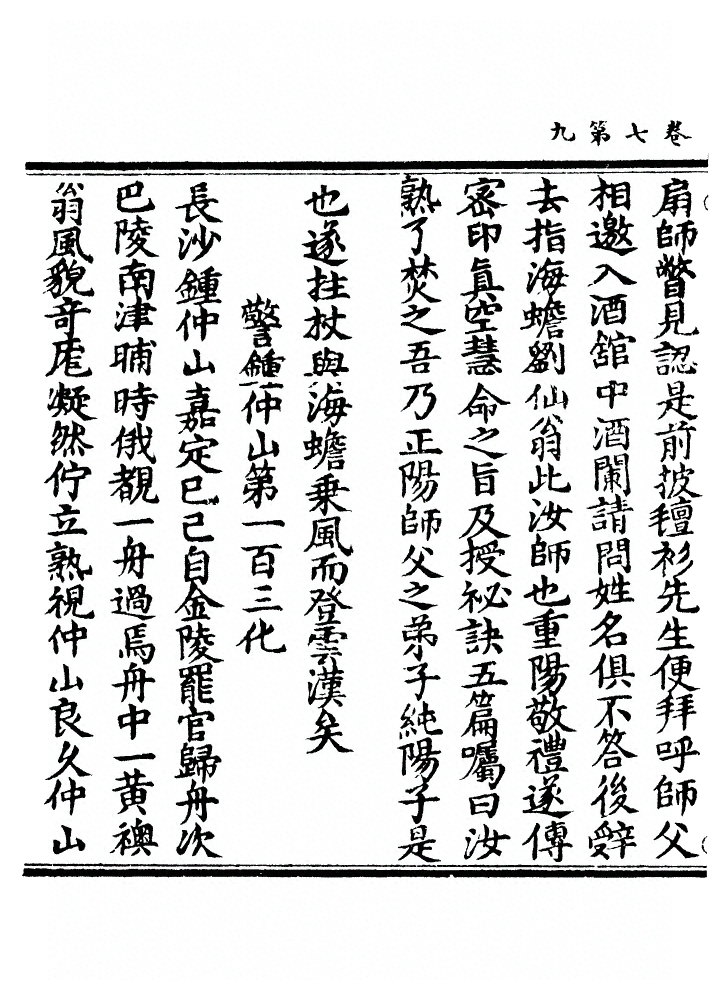 卷七第九
扇師瞥見認是前披氊衫先生便拜呼師父
相邀入酒舘中酒闌請問姓名俱不答後辤
去指海蟾劉仙翁此汝師也重陽敬禮遂傳
密印真空慧命之旨及授祕訣五篇囑曰汝
熟了焚之吾乃正陽師父之弟子純陽子是
也遂拄杖與海蟾乗風而登雲漢矣
警鍾仲山第一百三化
長沙鍾仲山嘉定巳已自金陵罷官歸舟次
巴陵南津晡時俄覩一舟過焉舟中一黄襖
翁風貌竒厖凝然佇立熟視仲山良久仲山